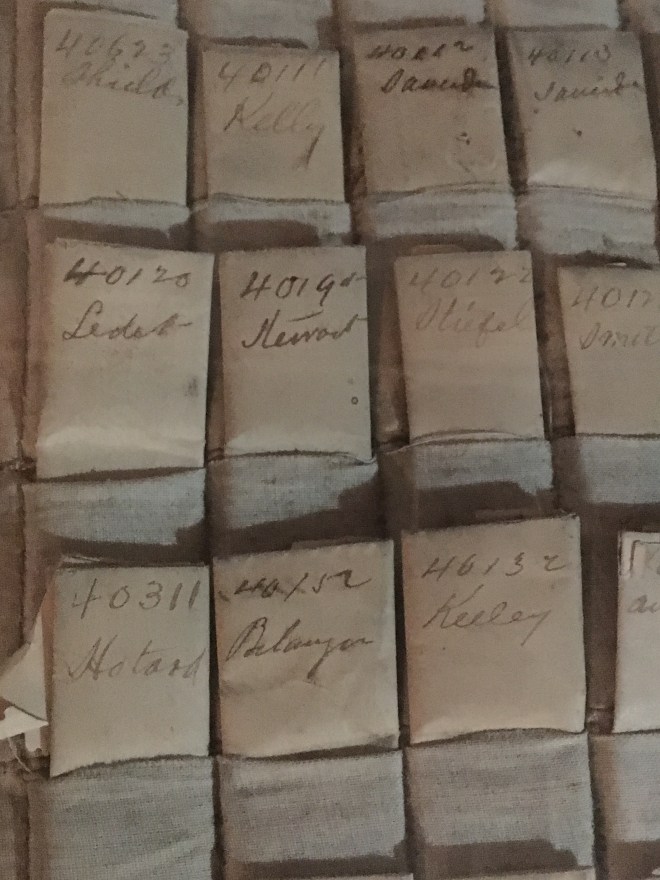 40623
Shields
40111
Kelly
40112
40113
40120
Ledet
4019
Stewart
40122
Stiefel
4012
Smit
40311
Hotard
40152
Belanger
40132
Keeley